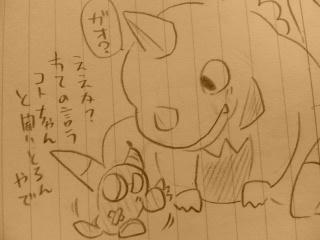 ガオ?
ええな?
あての言う
コトちゃん
と聞いとるん
やで